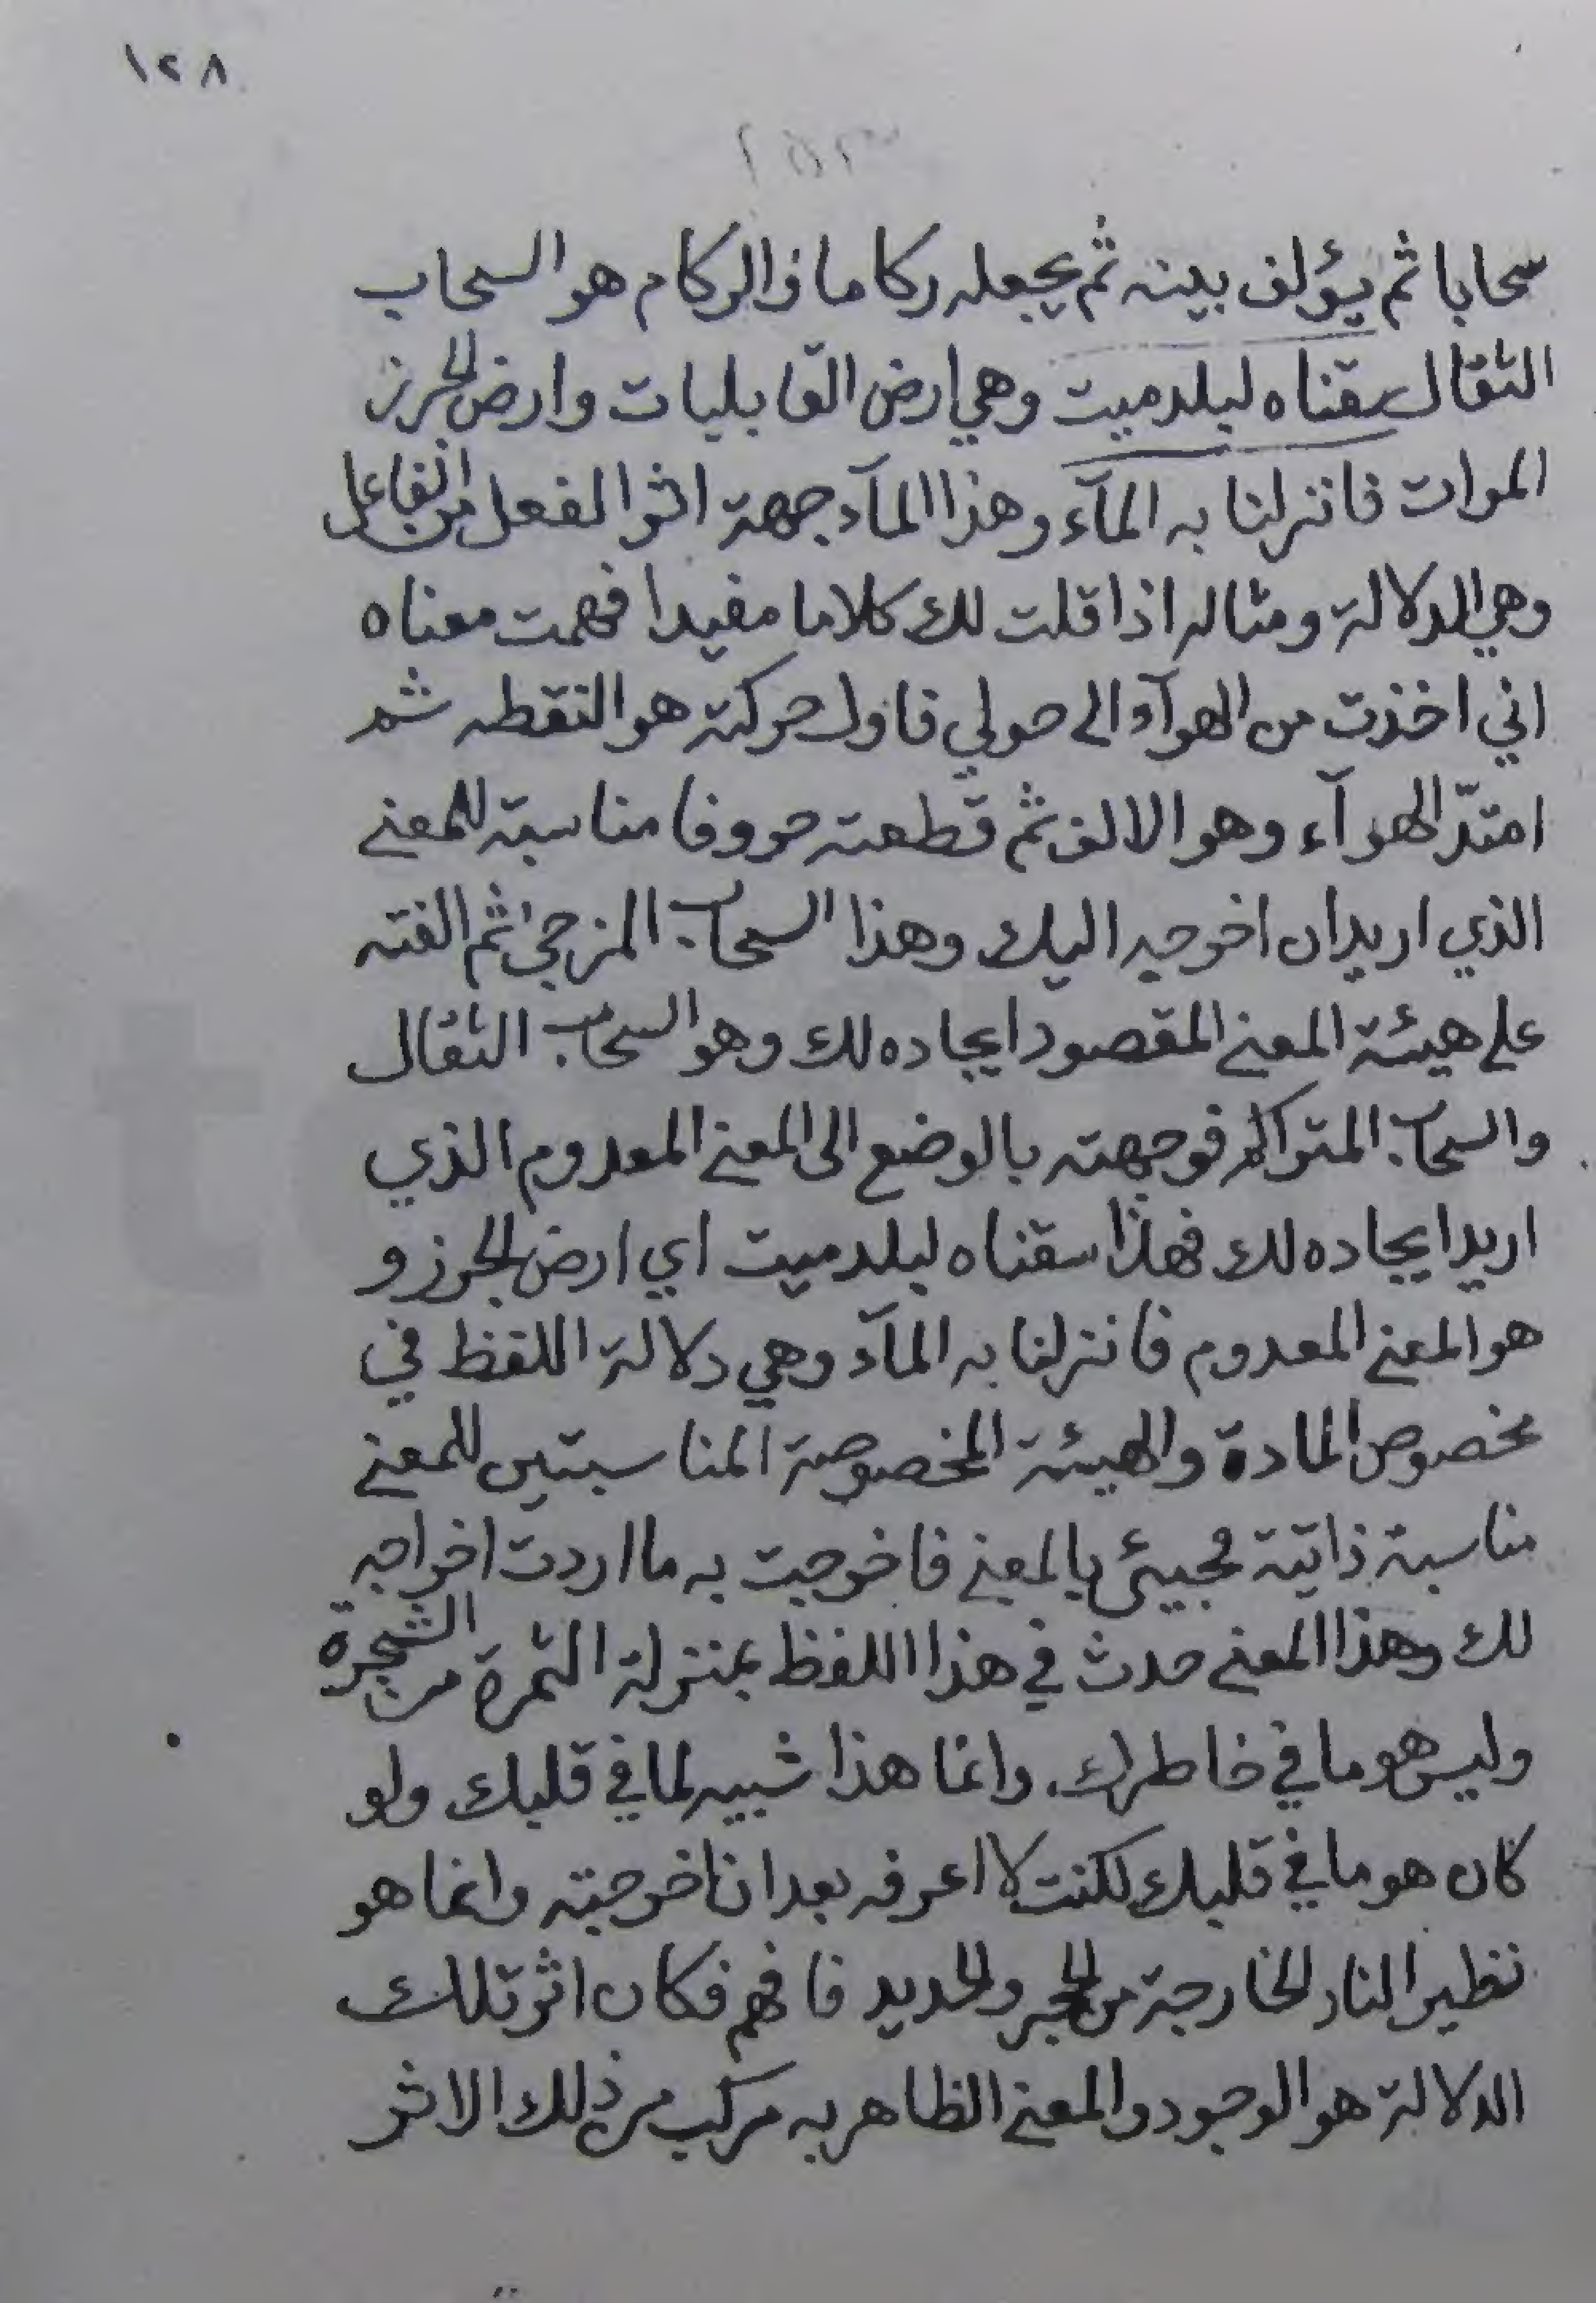 ١٢٨
سحابا ثم يؤلف بينه ثم يجعله ركاما فالركام هو السحاب
الثقال سقناه لبلد ميت وهي ارض القابليات وارض الجرز
الموات فانزلنا به المآء وهذا المآء جهة اثر الفعل من الفاعل
وهي الدلالة ومثاله اذا قلت لك كلاما مفيدا فهمت معناه
اني اخذت من الهوآء الى حولي فاول حركته هو النقطه ثم
امتدّ الهوآء وهو الالف ثم قطعته حروفا مناسبة للمعنى
الذي اريد ان اخرجه اليك وهذا السحاب المزجى ثم الفته
على هيئة المعنى المقصود ايجاده لك وهو السحاب الثقال
والسحاب المتراكم فوجهته بالوضع الى المعنى المعدوم الذي
اريد ايجاده لك فهذا سقناه لبلد ميت اي ارض الجرز و
هو المعنى المعدوم فانزلنا به المآء وهي دلالة اللفظ في
مخصوص المادة والهيئة المخصوصة المناسبتين للمعنى
مناسبة ذاتية مجيئ بالمعنى فاخرجت به ما اردت اخراجه
لك وهذا المعنى حدث في هذا اللفظ بمنزلة الثمرة من الشجرة
وليس هو ما في خاطرك وانما هذا شبيه لما في قلبك ولو
كان هو ما في قلبك لكنت لا اعرفه بعد ان اخرجته وانما هو
نظير النار الخارجة من الحجر والحديد فافهم فكان اثر تلك
الدلالة هو الوجود والمعنى الظاهر به مركب من ذلك الاثر